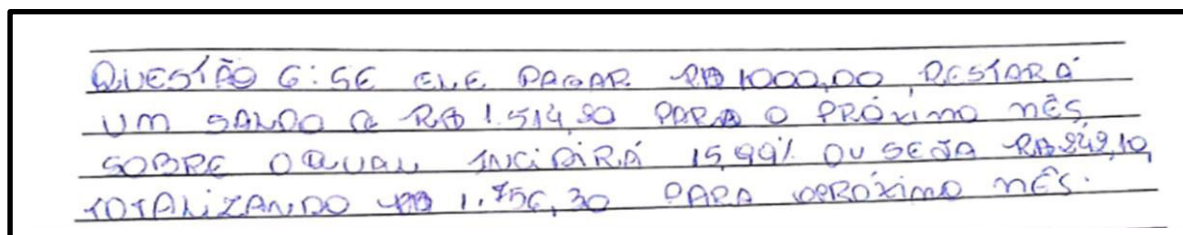 QUESTÃO 6: SE ELE PAGAR R$ 1000,00, RESTARÁ
UM SALDO DE R$ 1.514,20 PARA O PRÓXIMO MÊS
SOBRE O QUAL INCIDIRÁ 15,99% OU SEJA R$ 242,10,
TOTALIZANDO R$ 1.756,30 PARA O PRÓXIMO MÊS.